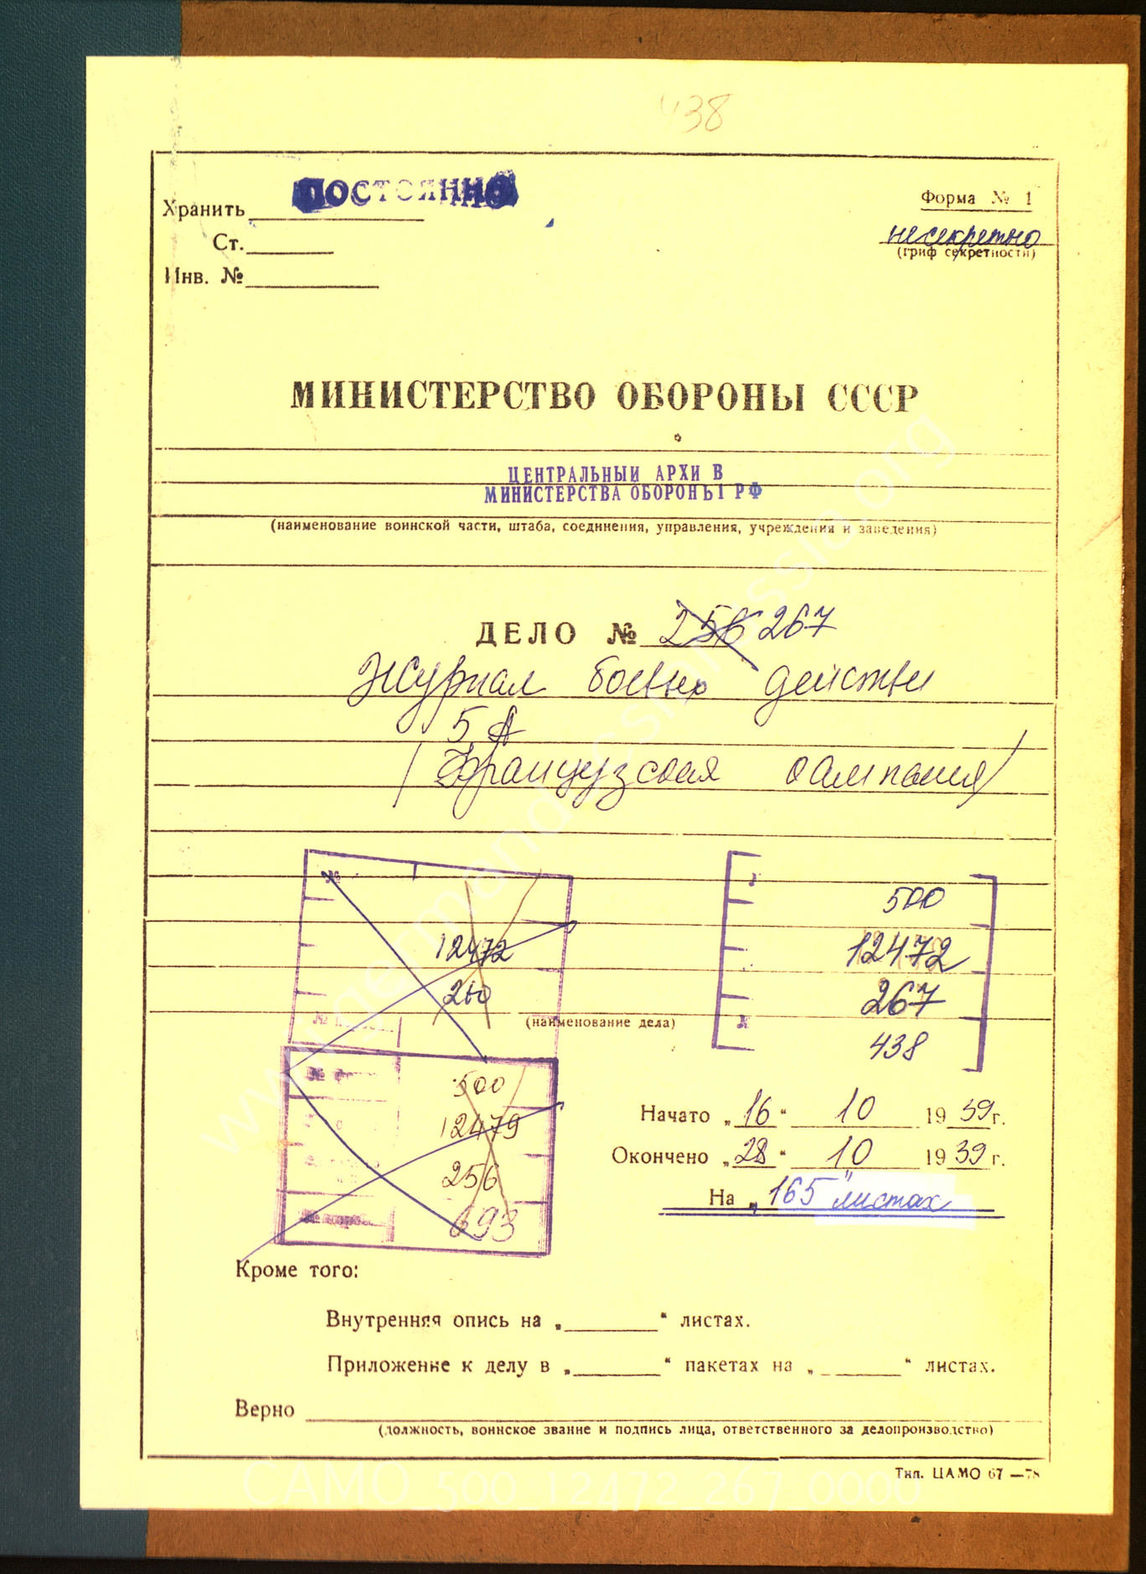 438
ПОСТОЯННО
Хранить
Форма № 1
Ст.
несекретно
(гриф секретности)
Инв. №
МИНИСТЕРСТВО ОБОРОНЫ СССР
ЦЕНТРАЛЬНЫЙ АРХИВ
МИНИСТЕРСТВА ОБОРОНЫ РФ
(наименование воинской части, штаба, соединения, управления, учреждения и заведения)
ДЕЛО № 256 267
Журнал боевых действи
5 А
(Французская кампания)
500
12472
12472
260
267
(наименование дела)
438
500
12479
256
693
Начато „16“ 10 1939г.
Окончено „28“ 10 1939г.
На „165“ листах
Кроме того:
Внутренняя опись на „ “ листах.
Приложение к делу в „ “ пакетах на „ “ листах.
Верно
(должность, воинское звание и подпись лица, ответственного за делопроизводство)
Тип. ЦАМО 67 —78
CAMO 500 12472 267 0000